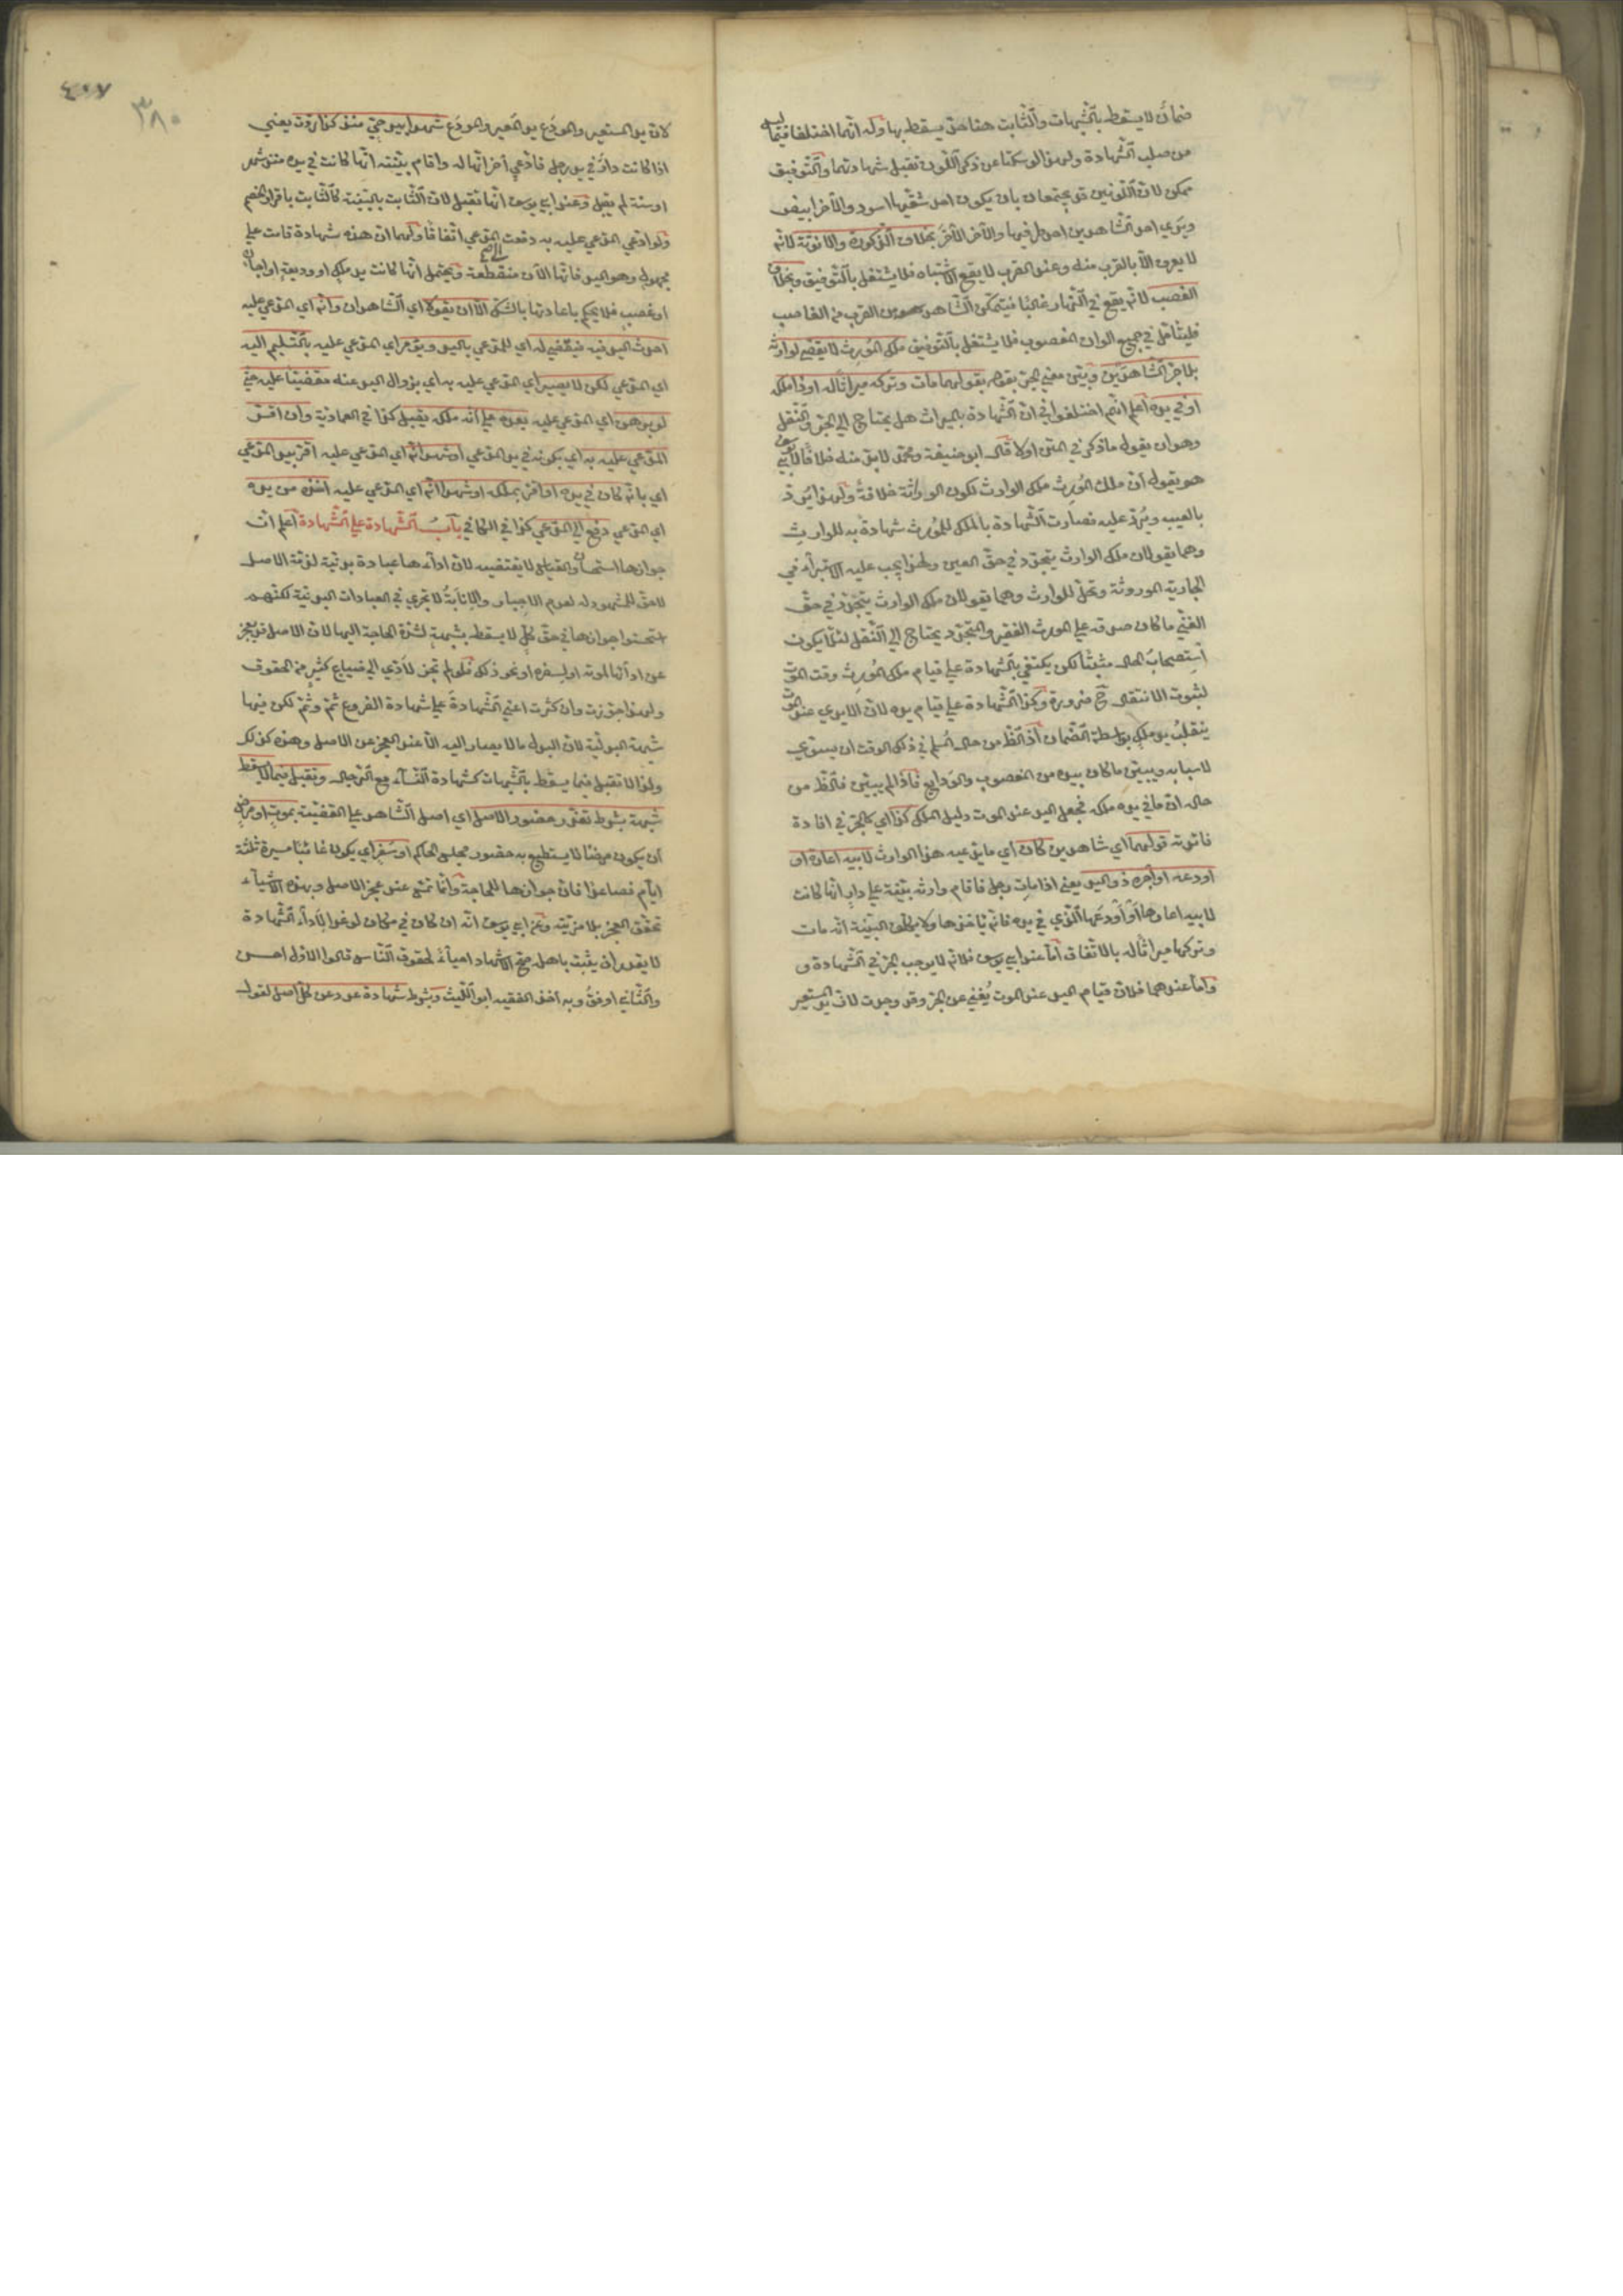 ضمان لا يسقط بالشبهات والثابت هنا حق يسقط بها وله انهما اختلفا فيما ليس
من صلب الشهادة ولهذا لو سكتا عن ذكر اللون تقبل شهادتهما والتوفيق
ممكن لان اللونين قد يجتمعان بان يكون احد شقيها اسود والآخر ابيض
ويرى احد الشاهدين احد طرفيها والآخر الآخر بخلاف الذكورة والانوثة لانه
لا يعرف الا بالقرب منه وعند القرب لا يقع الاشتباه فلا يشتغل بالتوفيق وبخلاف
الغصب لانه يقع في النهار غالبا فيتمكن الشاهد من القرب من الغاصب
فليتأمل في جميع الوان المغصوب فلا يشتغل بالتوفيق ملك المورث لا يقضى لوارثه
بلا جر الشاهدين وبين معنى الجر بقوله بقولهما مات وتركه ميراثا له او ذا ملكه
او في يده اعلم انهم اختلفوا في ان الشهادة بالميراث هل يحتاج الى الجر والنقل
وهو ان يقول ما ذكر في المتن اولا قال ابو حنيفة ومحمد لا بد منه خلافا لابي يوسف
هو يقول ان ملك المورث ملك الوارث لكون الوراثة خلافة ولهذا يرد
بالعيب ويرد عليه فصارت الشهادة بالملك للمورث شهادة به للوارث
وهما يقولان ملك الوارث يتجدد في حق العين ولهذا يجب عليه الاستبراء في
الجارية الموروثة وتحل للوارث وهما يقولان ملك الوارث يتجدد في حق
الغني ما كان صدقة على المورث الفقير والمتجدد يحتاج الى النقل لئلا يكون
استصحاب الحال مثبتا لكن يكتفي بالشهادة على قيام ملك المورث وقت الموت
لثبوت الانتقال ح ضرورة وكذا الشهادة على قيام يده لان الايدي عند الموت
ينقلب يد ملك بواسطة الضمان اذ الظ من حال المسلم في ذلك الوقت ان يسوي
لاسبابه ويبين ما كان بيده من المغصوب والودايع فاذا لم يبين فالظ من
حاله ان ما في يده ملكه فجعل اليد عند الموت دليل الملك كذا اي كالجر في افادة
فائدته قولهما اي شاهدين كان اي ما يدعيه هذا الوارث لابيه اعاره او
اودعه او آجره ذو اليد يعني اذا مات رجل فاقام وارثه بينة على دار انها كانت
لابيه اعارها او اودعها الذي في يده فانه يأخذها ولا يكلف البينة انه مات
وتركها ميراثا له بالاتفاق اما عند ابي يوسف فلانه لا يوجب الجر في الشهادة و
واما عندهما فلان قيام اليد عند الموت يغني عن الجر وقد وجدت لان يد المستعير
٤٠٧
٣٨٠
لان يد المستعير والمودع يد المعير والمودع شهدا بيد حي منذ كذا ردت يعني
اذا كانت دار في يد رجل فادعى آخر انها له واقام بينته انها كانت في يده منذ شهر
او سنة لم يقبل وعند ابي يوسف انها تقبل لان الثابت بالبينة كالثابت باقرار الخصم
ولو ادعى المدعى عليه به دفعت المدعي اتفاقا ولهما ان هذه شهادة قامت على
الى
مجهول وهو اليد فانها الآن منقطعة ويحتمل انها كانت يد ملك او وديعة او اجارة
او غصب فلا يحكم باعادتها بالشك الا ان يقولا اي الشاهدان وانه اي المدعى عليه
احدث اليد فيه فيقضى له اي للمدعي باليد ويؤمر اي المدعى عليه بالتسليم اليه
اي المدعي لكن لا يصير اي المدعى عليه به اي بزوال اليد عنه مقضيا عليه حتى
لو برهن اي المدعى عليه بعده على انه ملكه يقبل كذا في العمادية وان اقر
المدعى عليه به اي بكونه في يد المدعي او شهدا انه اي المدعى عليه اقر بيد المدعي
اي بانه كان في يده او اقر بملكه او شهدا انه اي المدعى عليه اخذه من يده
اي المدعي دفع الى المدعي كذا في الكافي باب الشهادة على الشهادة اعلم ان
جوازها استحسان والقياس لا يقتضيه لان اداءها عبادة بدنية لزمت الاصل
لا حق للمشهود له لعدم الاجبار والانابة لا تجري في العبادات البدنية لكنهم
استحسنوا جوازها في حق كل لا يسقط بشبهة لشدة الحاجة اليها لان الاصل قد يعجز
عن ادائها لموته او لسفره او نحو ذلك فلو لم تجز لادى الى ضياع كثير من الحقوق
ولهذا جوزت وان كثرت اعني الشهادة على شهادة الفروع ثم وثم لكن فيها
شبهة البدلية لان البدل ما لا يصار اليه الا عند العجز عن الاصل وهذه كذلك
ولذا لا تقبل فيما يسقط بالشبهات كشهادة النساء مع الرجال وتقبل فيما لا يسقط
شبهة بشرط تعذر حضور الاصل اي اصل الشاهد على القضية بموت او مرض
ان يكون مريضا لا يستطيع به حضور مجلس الحاكم او سفر اي يكون غائبا مسيرة ثلثة
ايام فصاعدا فان جوازها للحاجة وانما تمس عند عجز الاصل وبهذه الاشياء
تحقق العجز بلا مرية وعن ابي يوسف انه ان كان في مكان لو غدا لاداء الشهادة
لا يقدر ان يثبت باهله صح الاشهاد احياء لحقوق الناس قالوا الاول احسن
والثاني ارفق وبه اخذ الفقيه ابو الليث وبشرط شهادة عدد عن كل اصل لقول